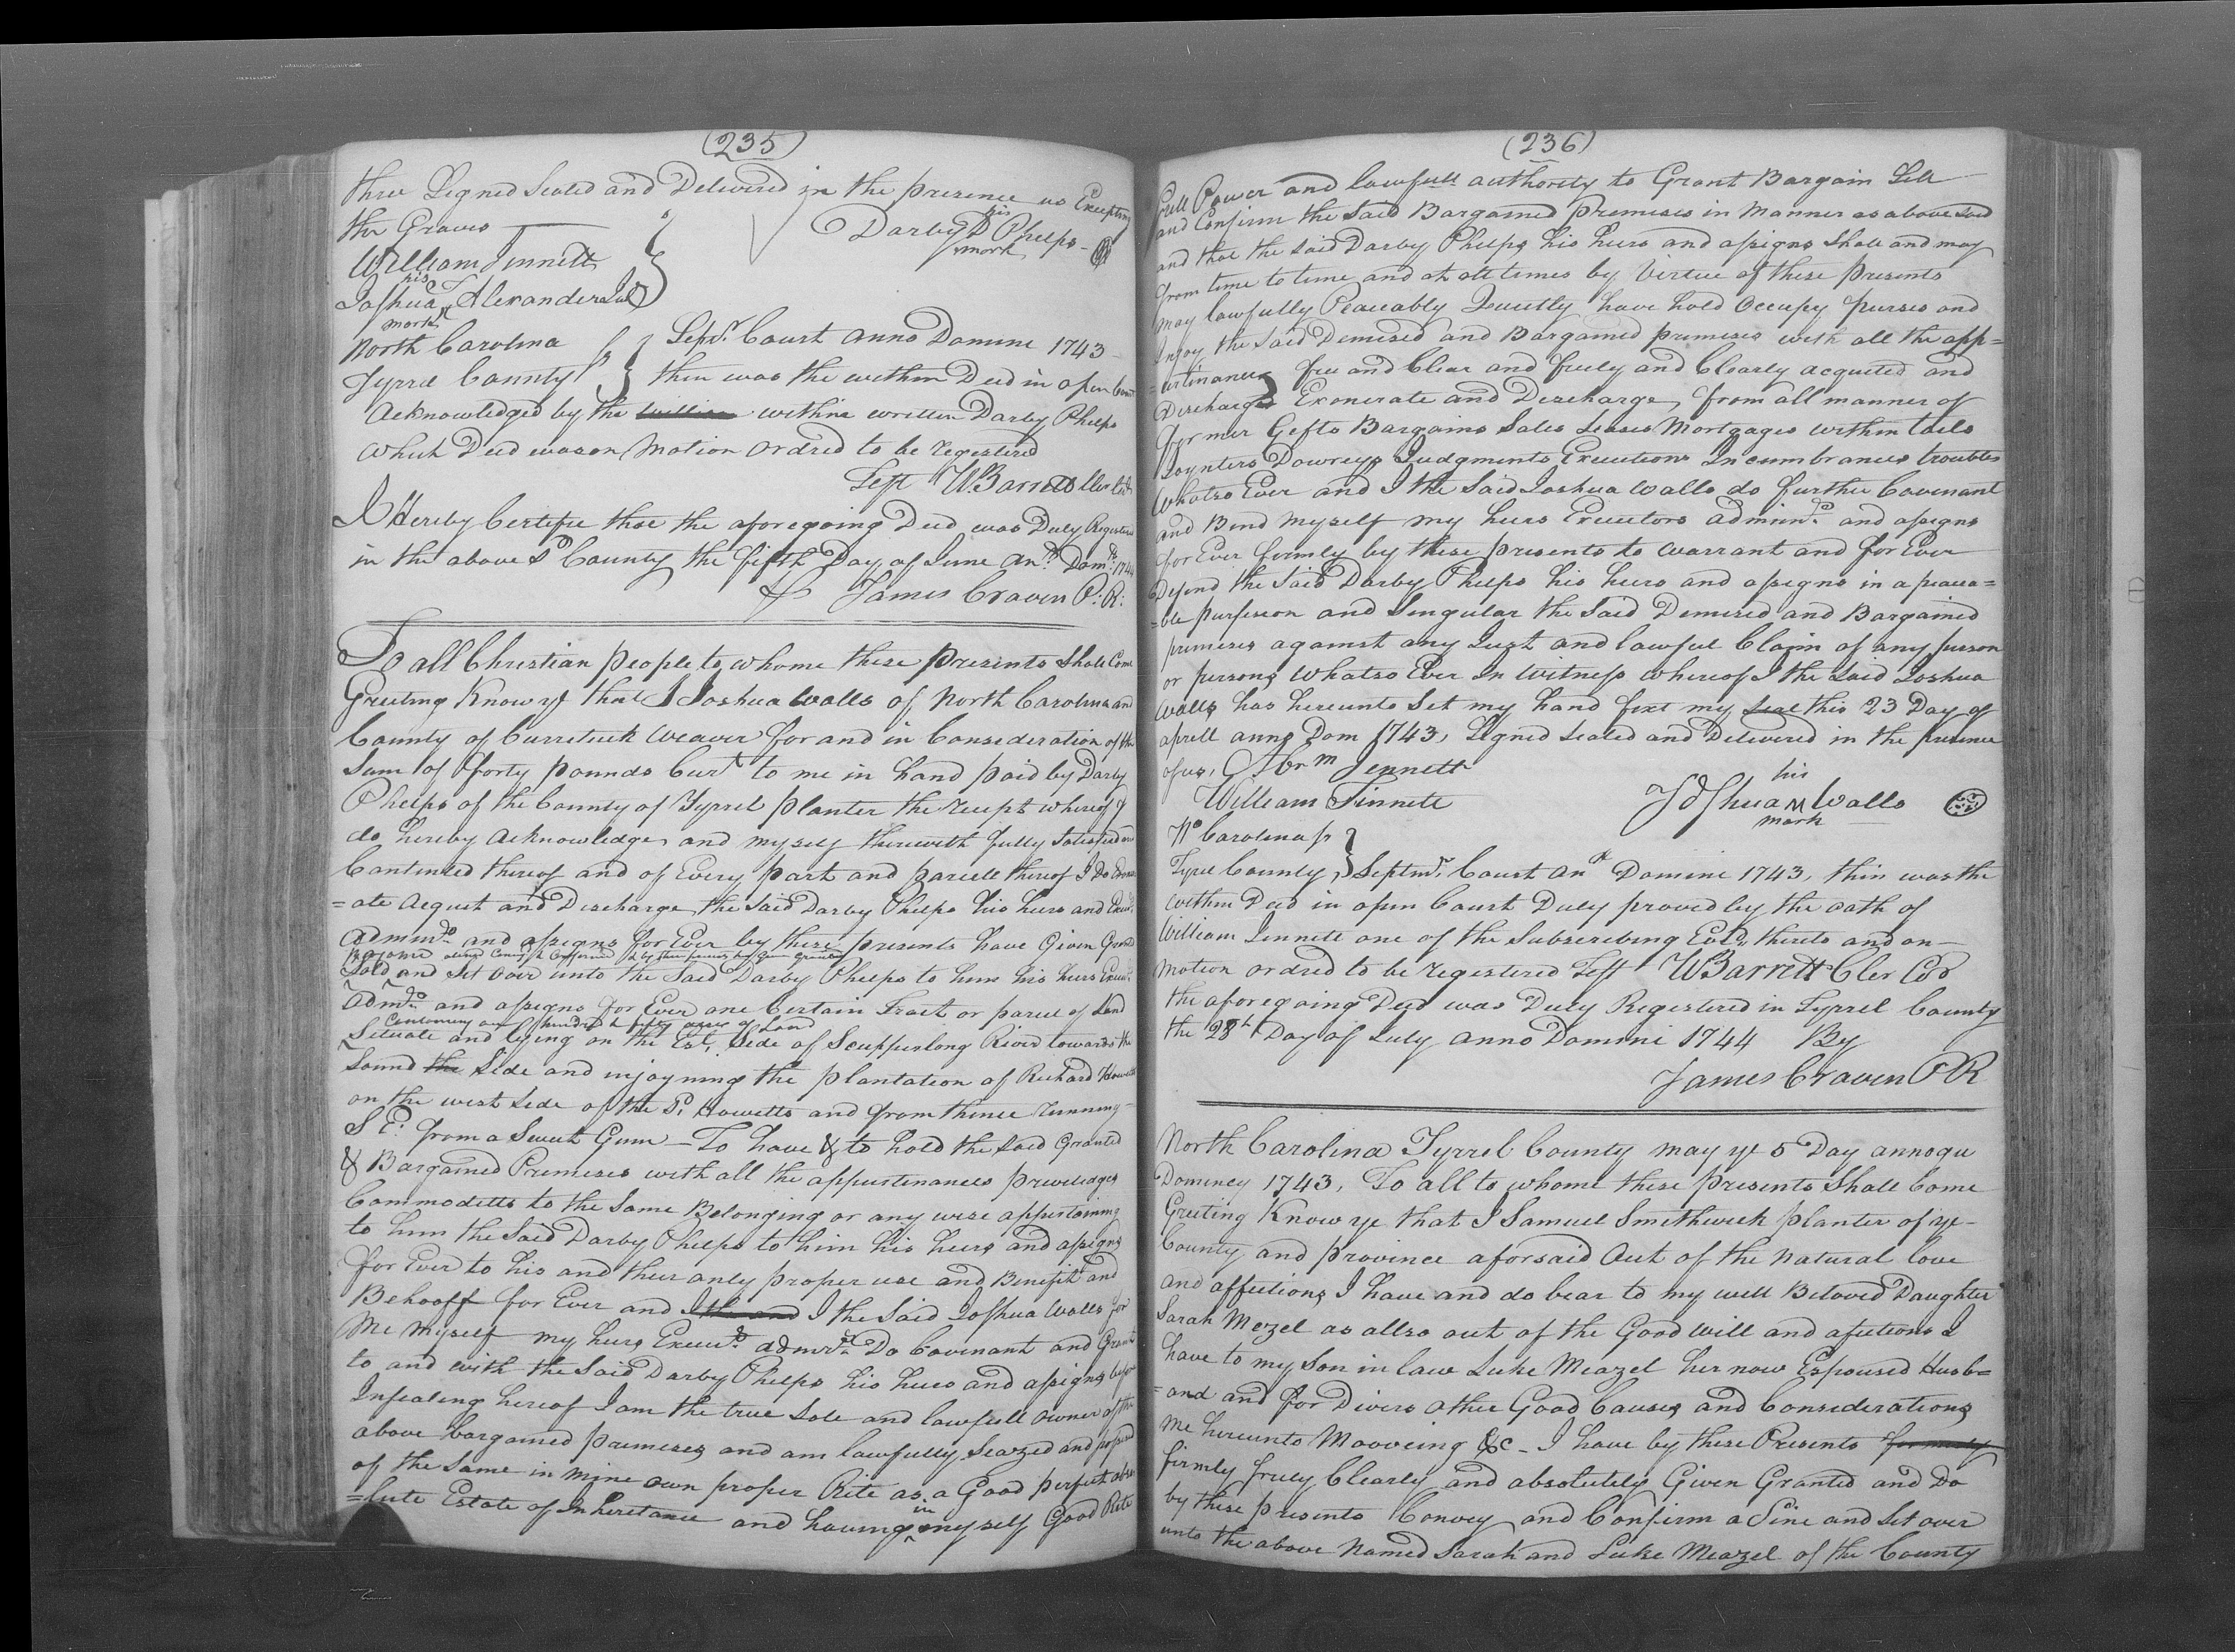 (235)
three Signed Sealed and Delivered in the presence us Excepting
the Graves
Darby his D Phelps
mark
William Jinnett
his
Joshua Alexander Jur
mark
North Carolina
Tyrrel County
Septr. Court Anno Domini 1743
then was the within Deed in open Court
Acknowledged by the within written Darby Phelps
which Deed was on Motion ordred to be registered
Test WBarrett Cler Cur
I Hereby Certifie that the aforegoing Deed was Duly Registered
in the above Sd County the fifth Day of June Ano. Dom. 1744
James Craven P: R:
To all Christian People to whome these presents Shall Come
Greeting Know ye that I Joshua Walls of North Carolina and
County of Currituck Weaver for and in Consideration of the
Sum of forty pounds Curt to me in hand paid by Darby
Phelps of the County of Tyrrel planter the recept whereof I
do hereby acknowledge and myself therewith fully Satisfied and
Contented thereof and of Every part and parcele thereof I do Exoner
=ate Acquit and Discharge the Said Darby Phelps his heirs and Execrs.
Adminrs. and assigns for Ever by these presents have Given Granted
Sold and Set over unto the Said Darby Phelps to him his heirs Execrs.
Admrs. and assigns for Ever one Certain Tract or parcel of Land
Containing one hundred & fifty acres of Land
Situate and lying on the Est. Side of Scupperlong River towards the
Sound the Side and injoyning the plantation of Richard Howett
on the west Side of the Sd. Howetts and from thence running
S E. from a Sweet Gum - To have & to hold the Said Granted
& Bargained Premises with all the appurtenances priveledges
Commoditts to the Same Belonging or any wise appertaining
to him the Said Darby Phelps to him his heirs and assigns
for Ever to his and their only proper use and Benefitt and
Behooff for Ever and I the and I the Said Joshua Walls for
Me myself my heirs Execrs. admrs. Do Covenant and Grant
to and with the Said Darby Phelps his heirs and assigns before
Insealing hereof I am the true Sole and lawfull owner of the
above bargained premises and am lawfully Seazed and
of the Same in mine own proper Rite as a Good perfect abso
=lute Estate of Inheretance and having in myself Good Rite
(236)
full Power and lawfull authority to Grant Bargain Sell
and Confirm the Said Bargained premises in Manner as above Said
and that the Said Darby Phelps his heirs and assigns Shall and may
from time to time and at all times by Virtue of these presents
may lawfully Peaceably Quietly have hold Occupy purses and
Injoy the Said Demised and Bargained premises with all the app=
=urtinances free and Clear and freely and Clearly acquited and
Discharge Exonerate and Discharge from all manner of
former Gefts Bargains Sales Leases Mortgages within tails
Joynters Dowreys Judgments Executions Incumbrances troubles
Whatso Ever and I the Said Joshua Walls do further Covenant
and Bind myself my heirs Executors adminrs. and assigns
for Ever firmly by these presents to warrant and for Ever
Defend the Said Darby Phelps his heirs and assigns in a peacea=
=ble pursesion and Singular the Said Demised and Bargained
premises against any Just and lawful Claim of any person
or persons whatso Ever In Witness whereof I the Said Joshua
Walls has hereunto Set my hand fixt my Seal this 23 Day of
aprell anno Dom 1743, Signed Sealed and Delivered in the presence
of us, Abrm Jennett
William Jinnett
his
Joshua M Walls
mark
No Carolina ss
Tyrel County, Septmr. Court an Domini 1743, then was the
within Deed in open Court Duly proved by the oath of
William Jinnett one of the Subscribing Evid. thereto and on
Motion ordred to be registered Test WBarrett Cler Co
the aforegoing Deed was Duly Registered in Tyrrel County
the 28th Day of July Anno Domini 1744 By
James Craven P R
North Carolina Tyrrel County may ye 5 Day annoqu
Dominey 1743, To all to whome these presents Shall Come
Greeting Know ye that I Samuel Smithwick planter of ye
County and province aforsaid Out of the Natural love
and affections I have and do bear to my well Beloved Daughter
Sarah Mezel as allso out of the Good will and afections I
have to my Son in law Luke Meazel her now Espoused Husb=
=and and for Divers other Good Causes and Considerations
Me hereunto Mooveing &c - I have by these Presents formerly
firmly fruly Clearly and absolutely Given Granted and Do
by these presents Convey and Confirm a Sine and Set over
unto the above Named Sarah and Luke Meazel of the County